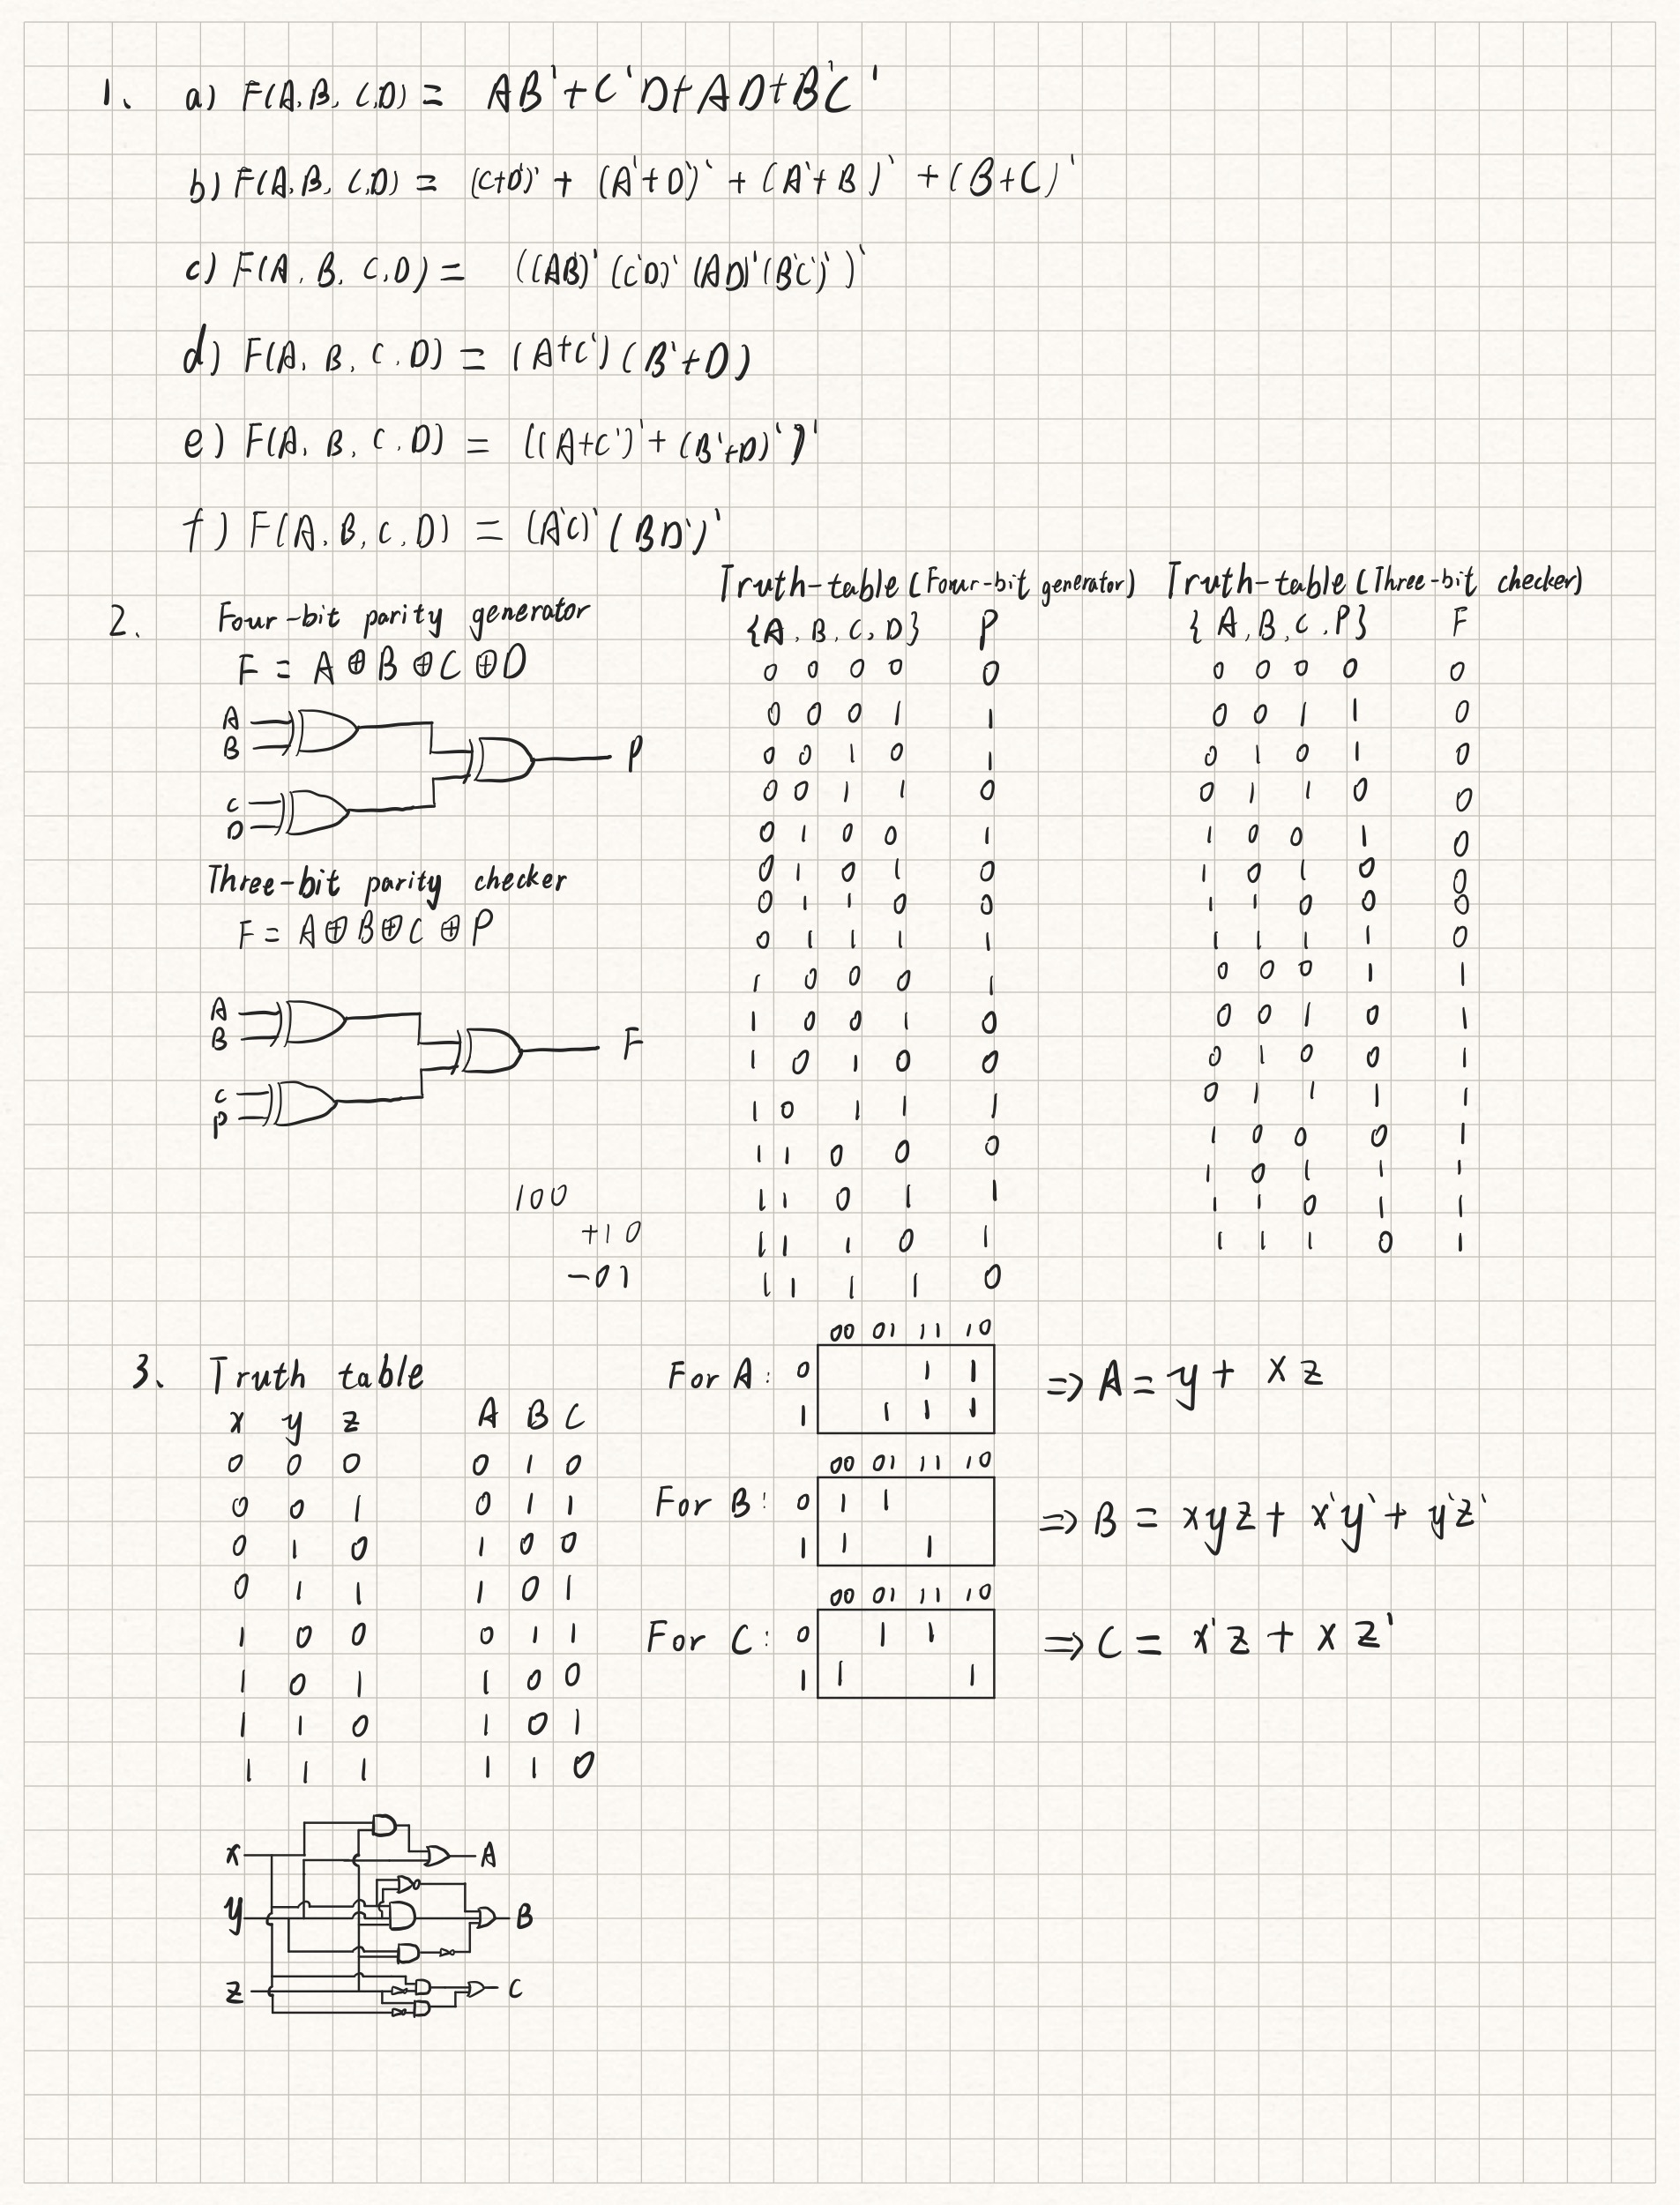 1. a) F(A,B,C,D) = AB'+C'D+AD+B'C'
b) F(A,B,C,D) = (C+D')' + (A'+D')' + (A'+B)' + (B+C)'
c) F(A,B,C,D) = ((AB')'(C'D)'(AD)'(B'C')')'
d) F(A,B,C,D) = (A+C')(B'+D)
e) F(A,B,C,D) = ((A+C')'+(B'+D)')'
f) F(A,B,C,D) = (A'C)'(BD')'
2. Four-bit parity generator
F = A⊕B⊕C⊕D
A
B
P
C
D
Three-bit parity checker
F = A⊕B⊕C⊕P
A
B
F
C
P
100
+10
-01
Truth-table (Four-bit generator)
{A,B,C,D} P
0 0 0 0 0
0 0 0 1 1
0 0 1 0 1
0 0 1 1 0
0 1 0 0 1
0 1 0 1 0
0 1 1 0 0
0 1 1 1 1
1 0 0 0 1
1 0 0 1 0
1 0 1 0 0
1 0 1 1 1
1 1 0 0 0
1 1 0 1 1
1 1 1 0 1
1 1 1 1 0
Truth-table (Three-bit checker)
{A,B,C,P} F
0 0 0 0 0
0 0 1 1 0
0 1 0 1 0
0 1 1 0 0
1 0 0 1 0
1 0 1 0 0
1 1 0 0 0
1 1 1 1 0
0 0 0 1 1
0 0 1 0 1
0 1 0 0 1
0 1 1 1 1
1 0 0 0 1
1 0 1 1 1
1 1 0 1 1
1 1 1 0 1
3. Truth table
x y z A B C
0 0 0 0 1 0
0 0 1 0 1 1
0 1 0 1 0 0
0 1 1 1 0 1
1 0 0 0 1 1
1 0 1 1 0 0
1 1 0 1 0 1
1 1 1 1 1 0
00 01 11 10
For A: 0 1 1 => A = y + xz
1 1 1 1
00 01 11 10
For B: 0 1 1 => B = xyz + x'y' + y'z'
1 1 1
00 01 11 10
For C: 0 1 1 => C = x'z + xz'
1 1 1
x A
y B
z C